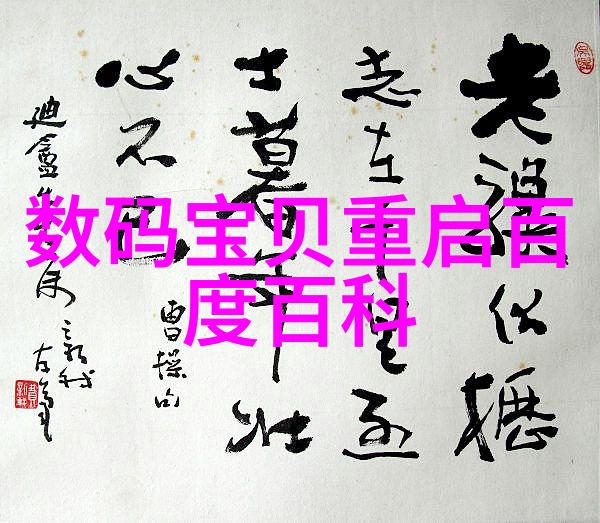 数码宝贝重启百
度百科
老骥伏櫪
志在千里烈
士暮年壮
心不已
曹操句